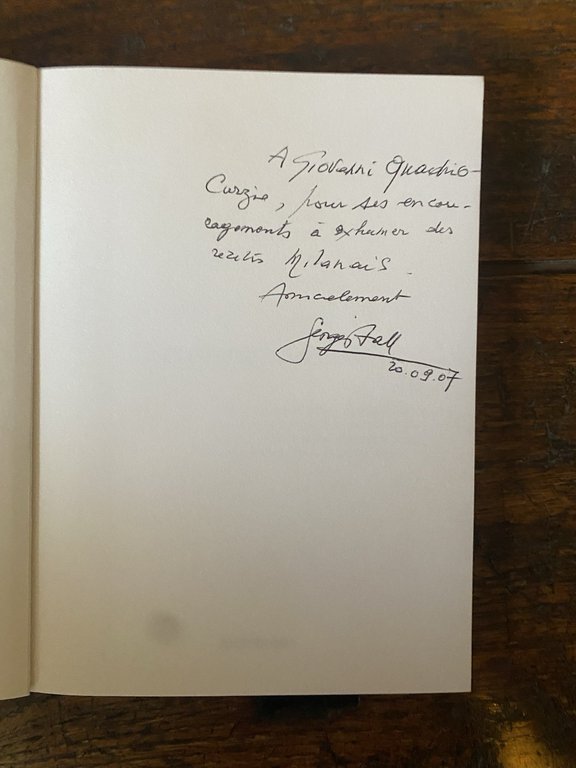 A Giovanni Quadrio-
Curzio, pour ses encou-
ragements à exhumer des
récits Milanais.
Amicalement
Georges Fall
20.09.07